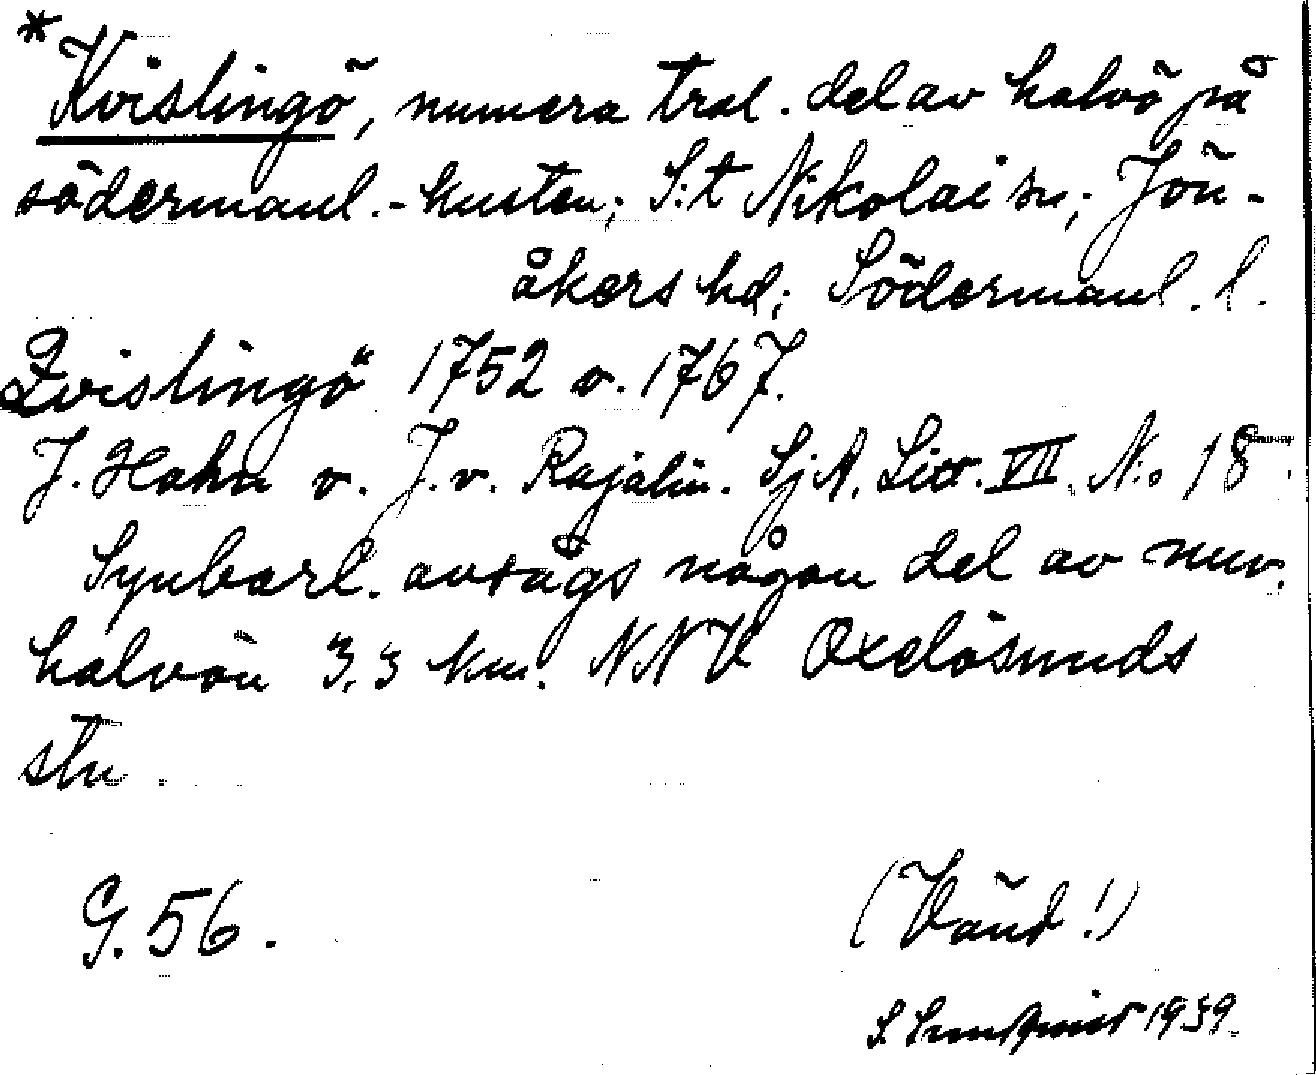 *Kvislingö, numera trol. del av halvö på
södermanl.-kusten; S:t Nikolai sn; Jön-
åkers hd; Södermanl. l.
Qvislingö 1752 o. 1767.
J. Hahn o. J. v. Rajalin. SjA. Litt. VII. N:o 18.
Synbarl. avsågs någon del av nuv.
halvön 3,3 km. NNV Oxelösunds
stn.
G. 56.
(Vänd!)
S. 1939.